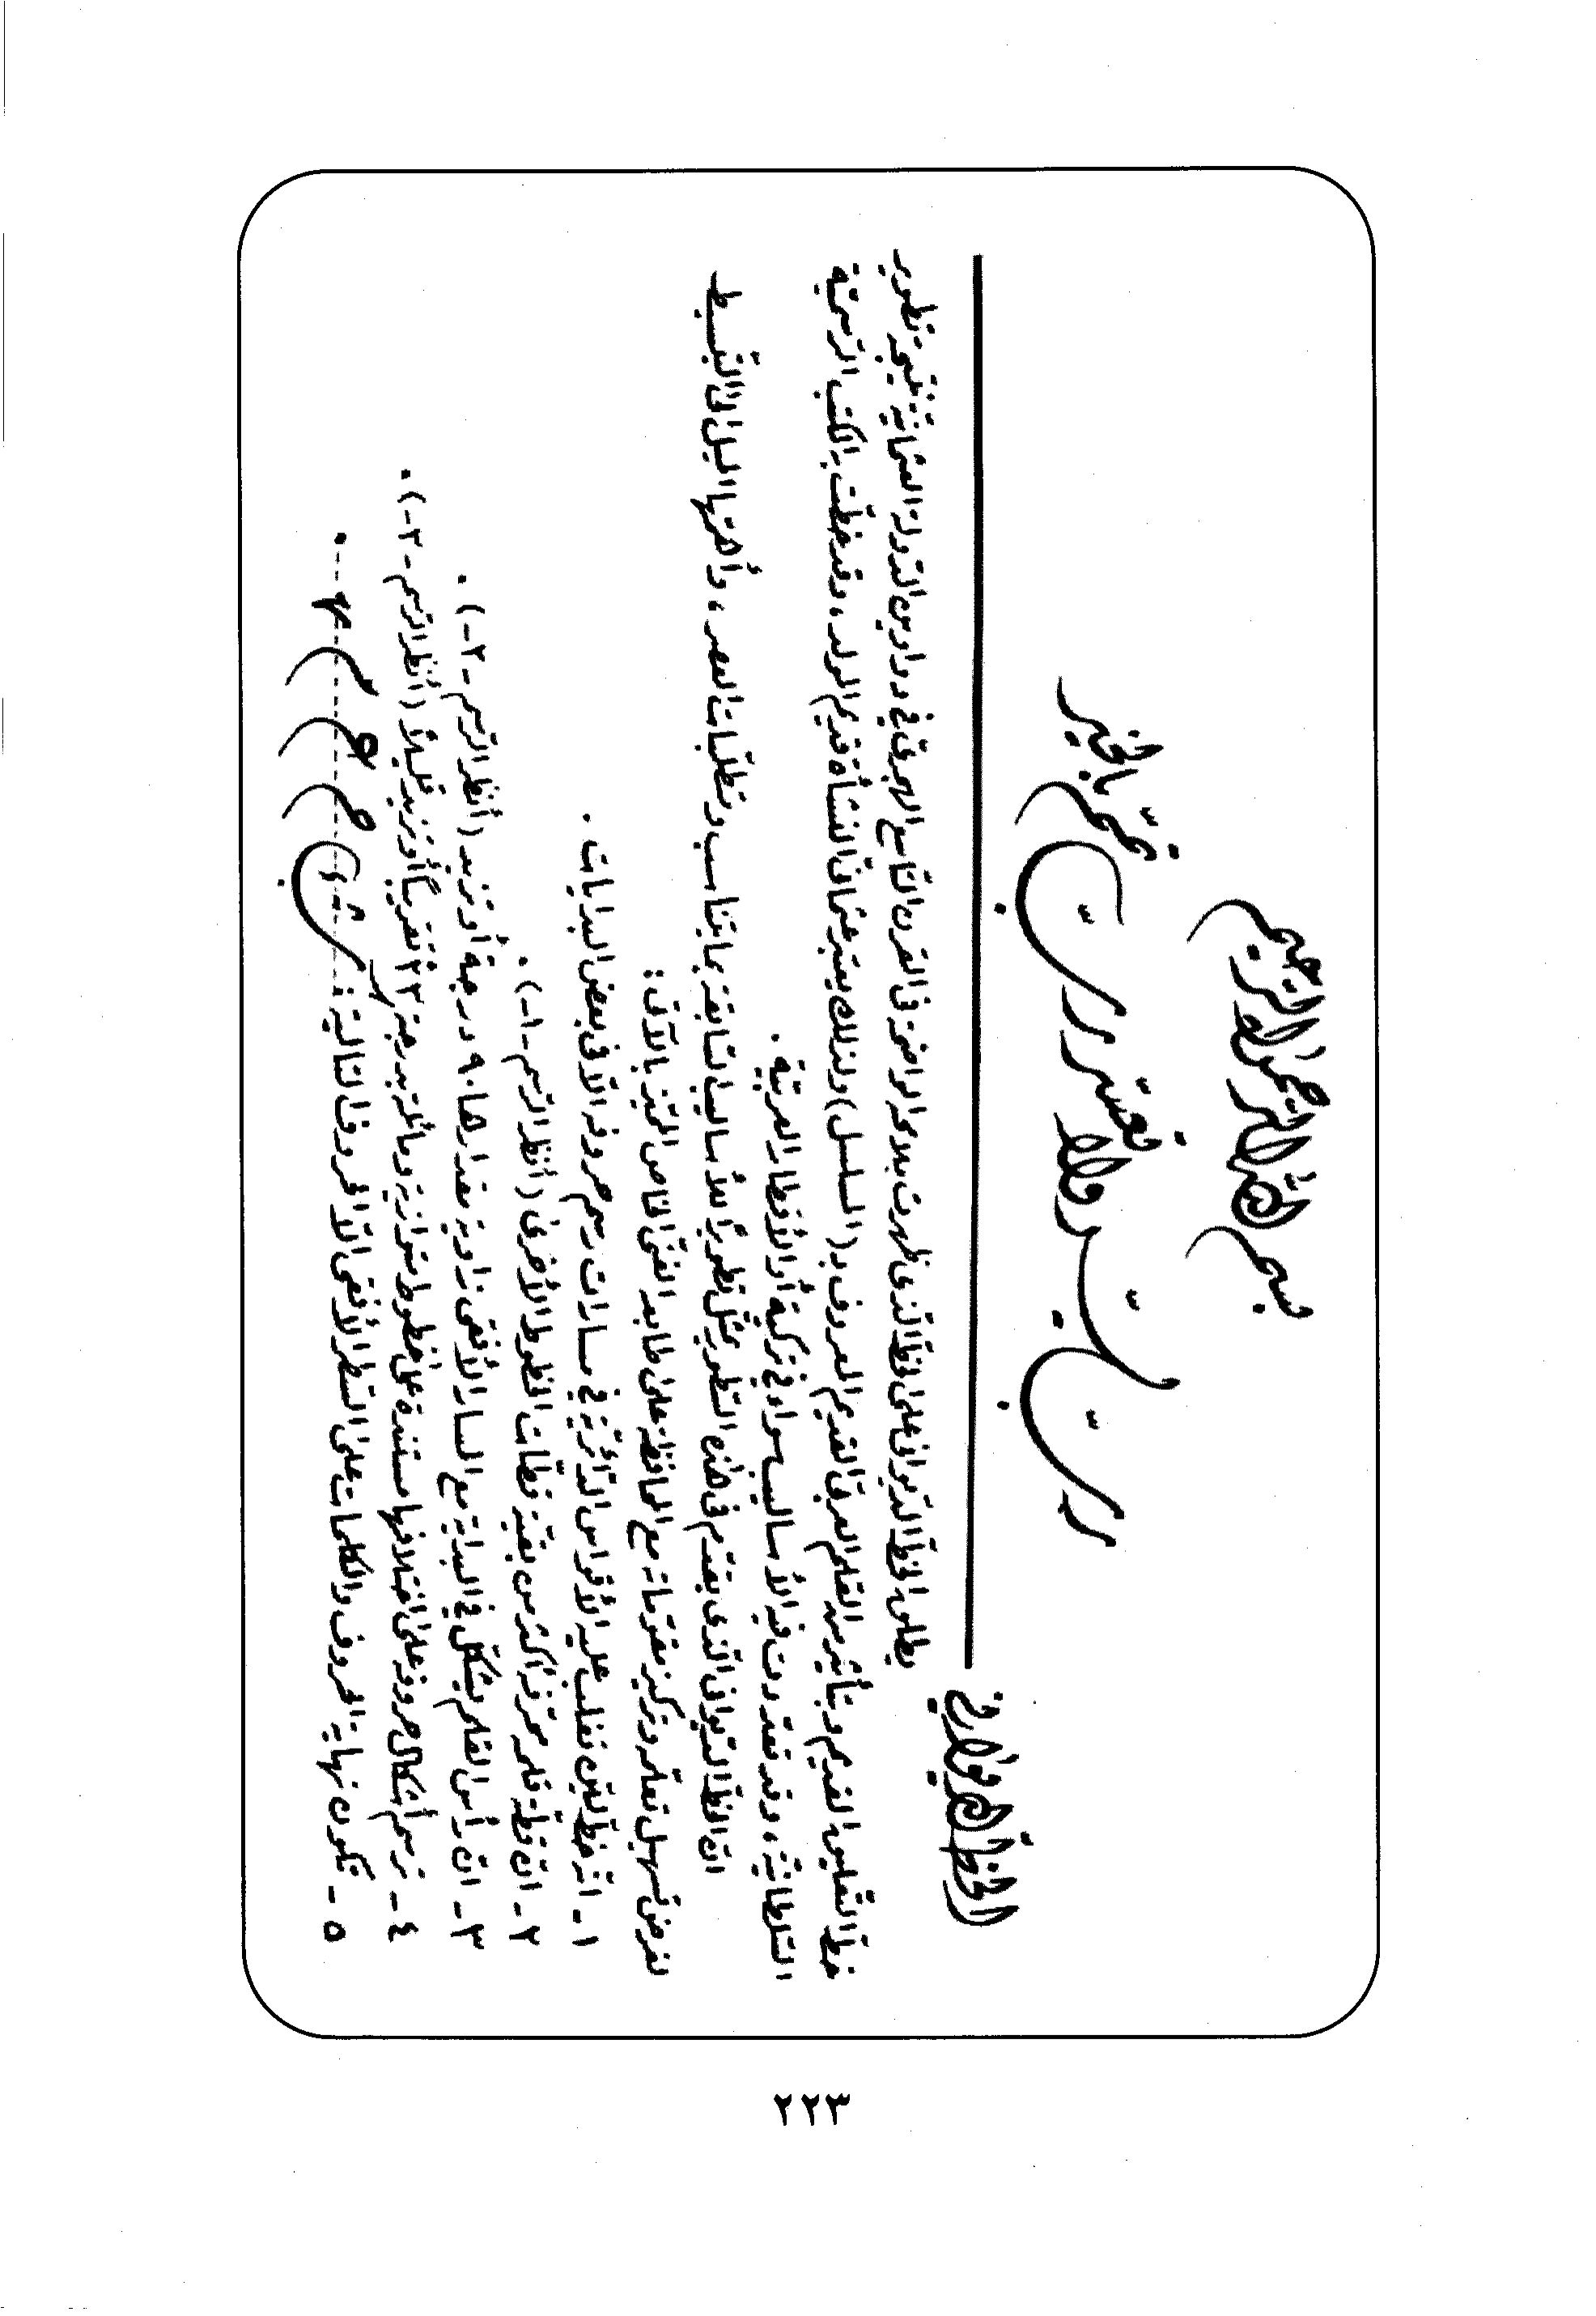 بسم الله الرحمن الرحيم
رب يسر ولا تعسر رب تمم بالخير
الخط الديواني
يطلق الخط الديواني على الخط الذي ظهرت ملامحه الواضحة في القرن التاسع الهجري في دواوين الدولة العثمانية نتيجة تطوير
خط التعليق القديم وتأثير من القلم العربي القديم المعروف بـ (المسلسل) ولذلك يعتبر عثماني النشأة قديم المولد، وقد خطت به الكتب الرسمية
السلطانية، وقد تعددت فيه الأساليب سواء في تركية أو الأقطار العربية.
ان الخط الديواني الذي يقدم في هذه السطور يمثل تطويراً للأساليب السابقة بما يتناسب ومتطلبات العصر، وأهمها الميل الى التبسيط
لغرض تسهيل تعلمه وتركيز مقوماته مع المحافظة على طابعه الفني الخاص المتميز بالآتي:
١- انه خط لين تغلب عليه الأقواس الدائرية في مسارات رسم حروفه الا في بعض البدايات.
٢- ان قطة قلمه محرفة أكثر من بقية قطات الخطوط الأخرى (أنظر الرسم -١-).
٣- ان رأس القلم يشكل في البداية مع المسار الأفقي زاوية مقدارها ٩٠ درجة أو تزيد (أنظر الرسم -٢-).
٤- ترسم أشكال حروفه على اختلافها مستندة على خطوط متوازية ومائلة بدرجة ٣٣ْ تقريباً أو تزيد قليلاً (أنظر الرسم -٣-).
٥- تكون نهاية الحروف والكلمات على السطر الأفقي الا الحروف التالية:
٢٢٣